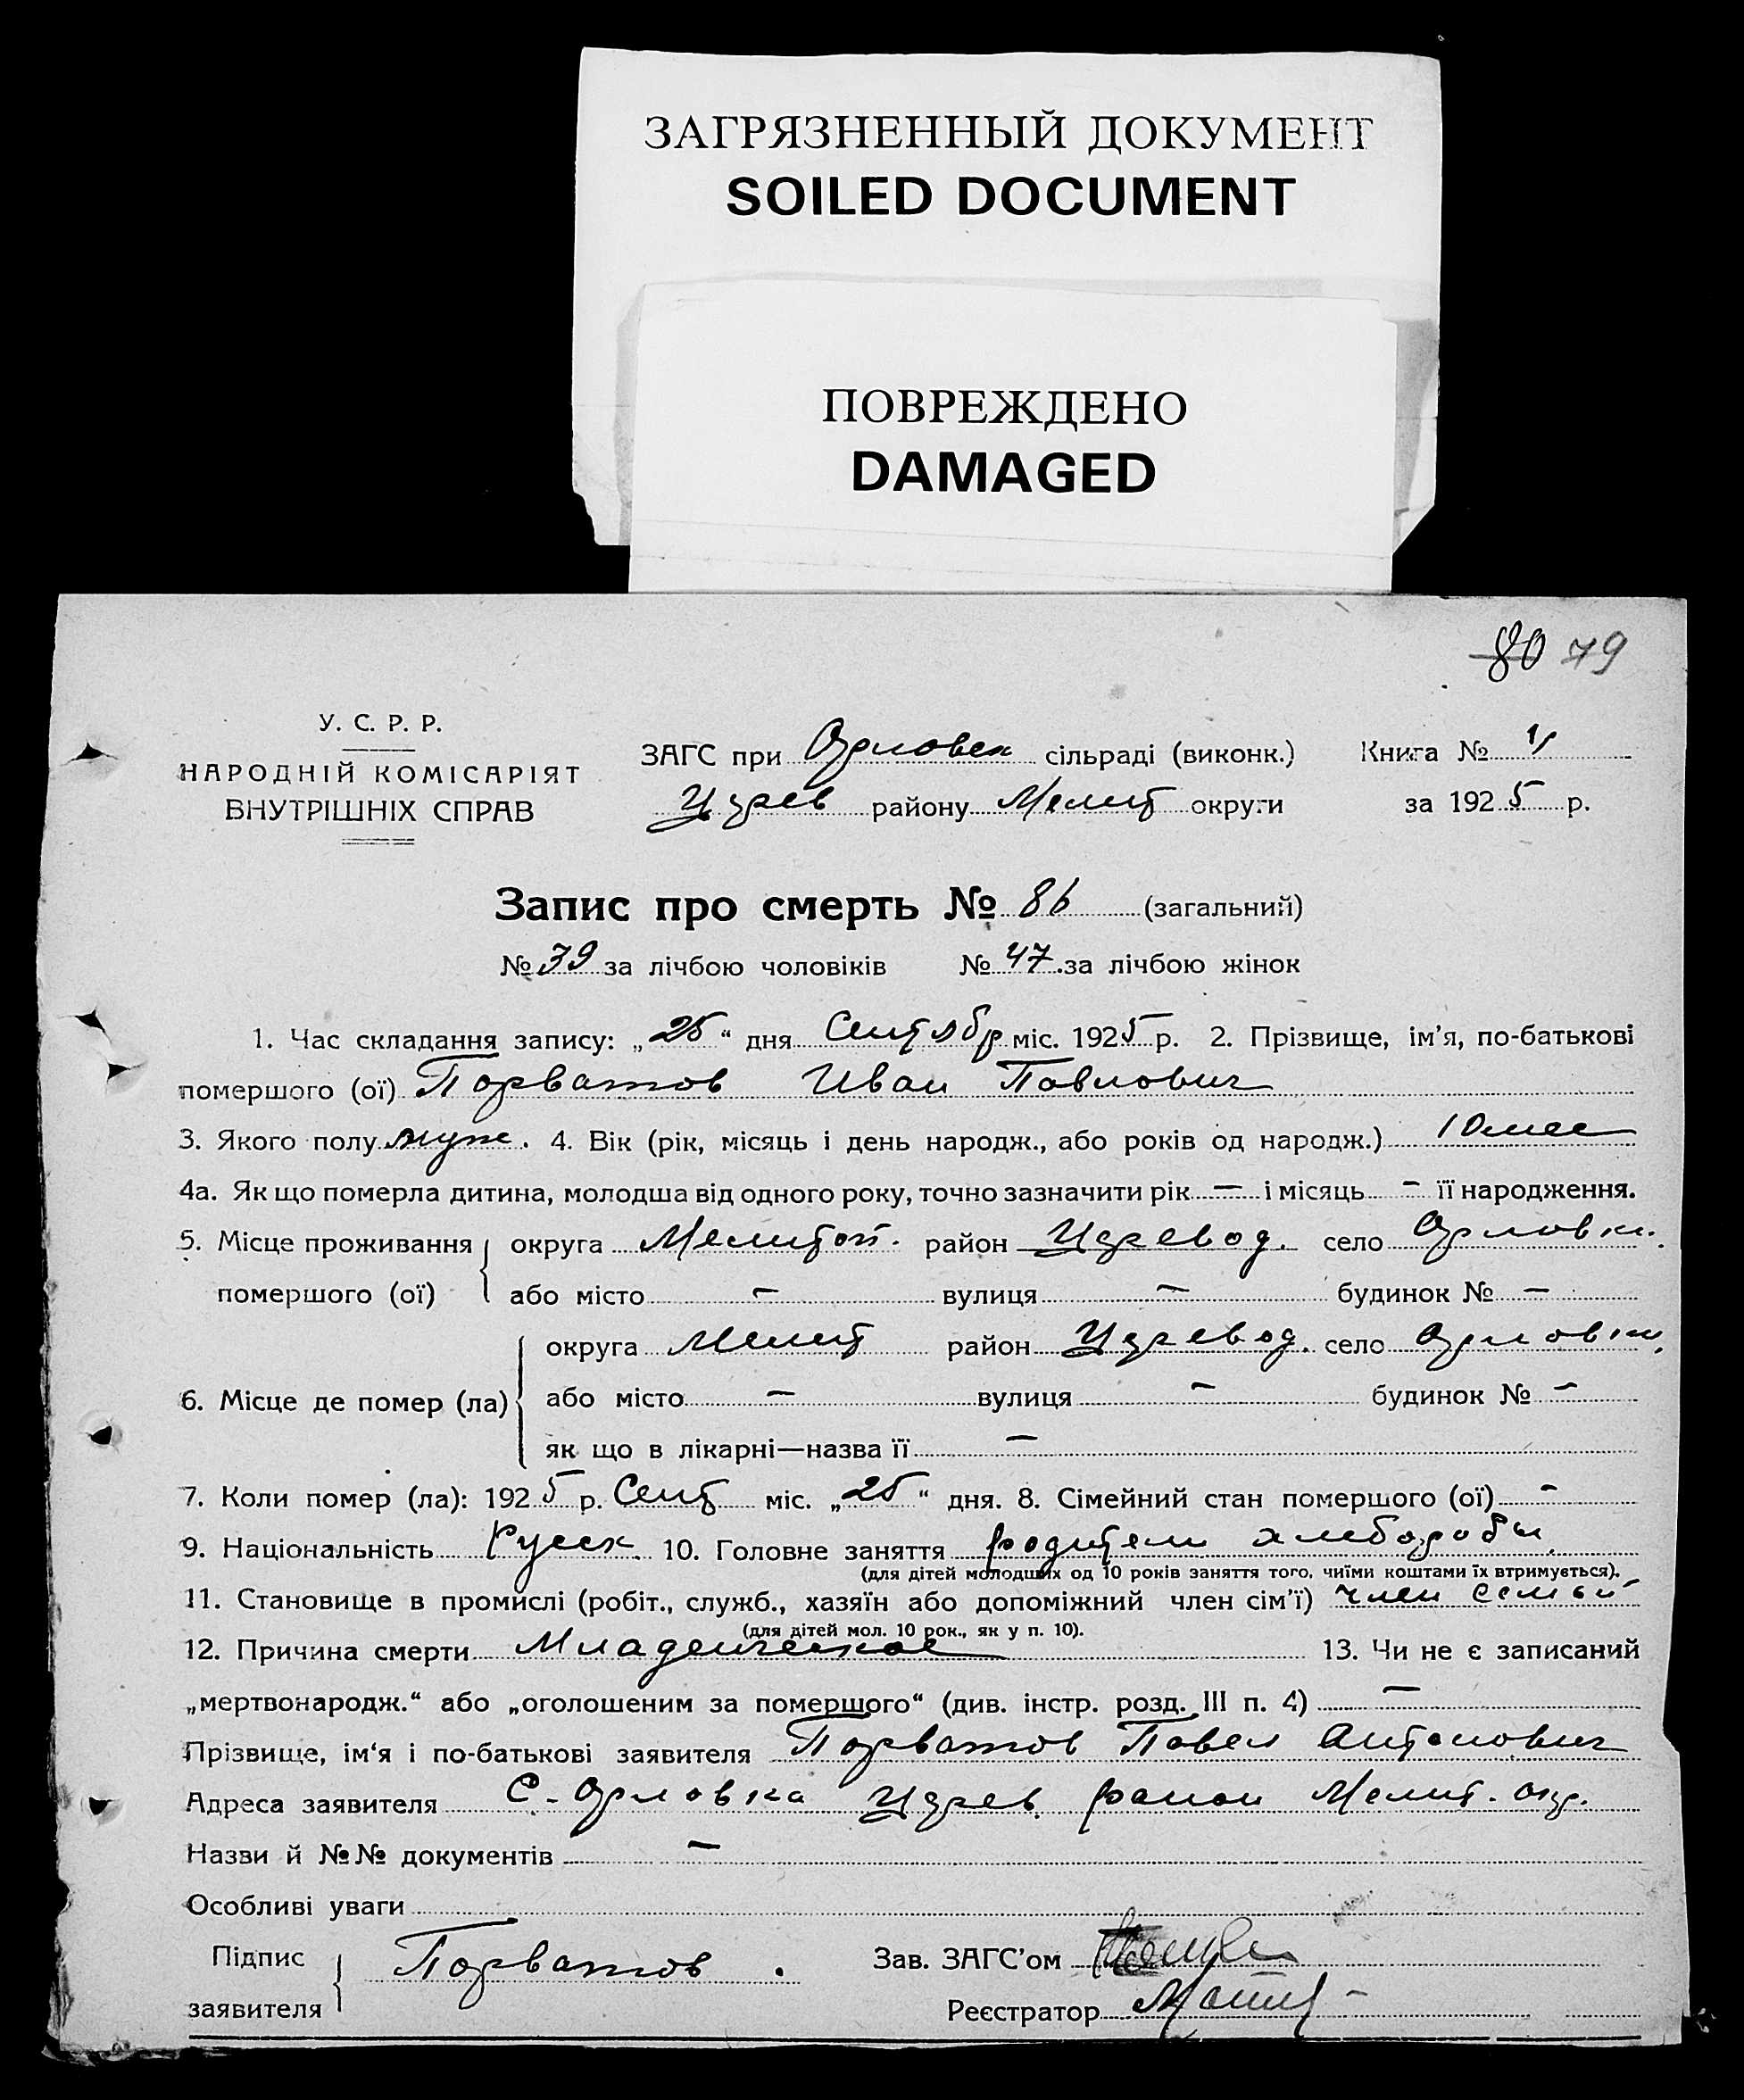 ЗАГРЯЗНЕННЫЙ ДОКУМЕНТ
SOILED DOCUMENT
ПОВРЕЖДЕНО
DAMAGED
80 79
У. С. Р. Р.
НАРОДНІЙ КОМІСАРІЯТ
ВНУТРІШНІХ СПРАВ
ЗАГС при Орловск сільраді (виконк.) Книга №
Царев району Мелит округи за 1925 р.
Запис про смерть № 86 (загальний)
№ 39 за лічбою чоловіків № 47 за лічбою жінок
1. Час складання запису: „25“ дня Сентябр міс. 1925 р. 2. Прізвище, ім’я, по-батькові
помершого (ої) Порватов Иван Павлович
3. Якого полу муж. 4. Вік (рік, місяць і день народж., або років од народж.) 10 мес
4а. Як що померла дитина, молодша від одного року, точно зазначити рік — і місяць - її народження.
5. Місце проживання округа Мелитоп. район Царевод. село Орловк.
помершого (ої) або місто — вулиця — будинок № —
округа Мелит район Царевод. село Орловк.
6. Місце де помер (ла) або місто — вулиця — будинок № —
як що в лікарні—назва її —
7. Коли помер (ла): 1925 р. Сент міс. „25“ дня. 8. Сімейний стан помершого (ої) -
9. Національність Русск. 10. Головне заняття родители хлеборобы
(для дітей молодших од 10 років заняття того, чиїми коштами їх втримується).
11. Становище в промислі (робіт., служб., хазяїн або допоміжний член сім’ї) член семьи
(для дітей мол. 10 рок., як у п. 10).
12. Причина смерти Младенческое 13. Чи не є записаний
„мертвонародж.“ або „оголошеним за помершого“ (див. інстр. розд. III п. 4) —
Прізвище, ім‘я і по-батькові заявителя Порватов Павел Антонович
Адреса заявителя С. Орловка Царев район Мелит. окр.
Назви й №№ документів —
Особливі уваги
Підпис заявителя Порватов. Зав. ЗАГС’ом
Реєстратор